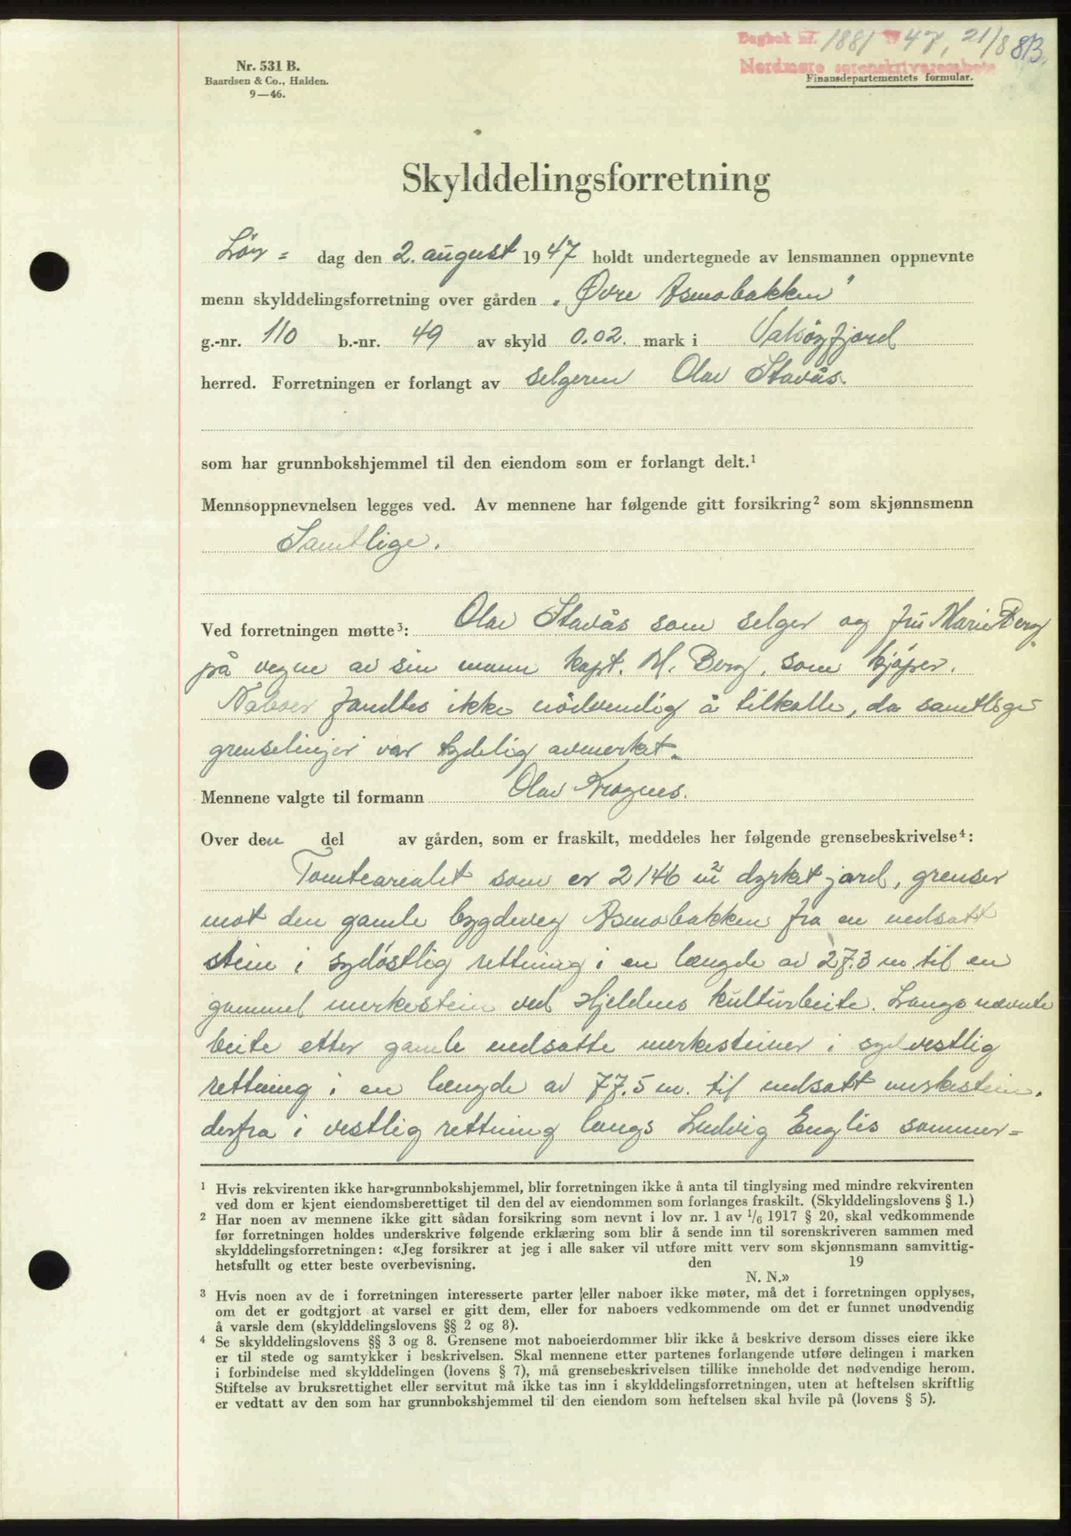 Dagbok nr. 1881 1947, 21/8 813.
Nordmøre sorenskriverembete
Nr. 531 B.
Baardsen & Co., Halden.
9—46.
Finansdepartementets formular.
Skylddelingsforretning
Lør- dag den 2. august 1947 holdt undertegnede av lensmannen oppnevnte
menn skylddelingsforretning over gården "Øvre Asmobakken"
g.-nr. 110 b.-nr. 49 av skyld 0.02. mark i Valsøyfjord
herred. Forretningen er forlangt av selgeren Olav Stavås.
som har grunnbokshjemmel til den eiendom som er forlangt delt.¹
Mennsoppnevnelsen legges ved. Av mennene har følgende gitt forsikring² som skjønnsmenn
Samtlige.
Ved forretningen møtte³: Olav Stavås som selger og fru Marie Berg
på vegne av sin mann kapt. M. Berg, som kjøper.
Naboer fandtes ikke nödvendig å tilkalle, da samtlige
grenselinjer var tydelig avmerket.
Mennene valgte til formann Olav Krognes.
Over den del av gården, som er fraskilt, meddeles her følgende grensebeskrivelse⁴:
Tomtearealet som er 2146 m² dyrket jord, grenser
mot den gamle bygdevey Asmobakken fra en nedsatt
stein i sydöstlig rettning i en længde av 27.3 m til en
gammel merkestein ved Hjeldnes kulturbeite. Langs nævnte
beite etter gamle nedsatte merkesteiner i sydvestlig
rettning i en længde av 77.5 m. til nedsatt merkestein.
derfra i vestlig rettning langs Ludvig Englis sommer-
¹ Hvis rekvirenten ikke har grunnbokshjemmel, blir forretningen ikke å anta til tinglysing med mindre rekvirenten
ved dom er kjent eiendomsberettiget til den del av eiendommen som forlanges fraskilt. (Skylddelingslovens § 1.)
² Har noen av mennene ikke gitt sådan forsikring som nevnt i lov nr. 1 av 1/6 1917 § 20, skal vedkommende
før forretningen holdes underskrive følgende erklæring som blir å sende inn til sorenskriveren sammen med
skylddelingsforretningen: «Jeg forsikrer at jeg i alle saker vil utføre mitt verv som skjønnsmann samvittig-
hetsfullt og etter beste overbevisning. den 19
N. N.»
³ Hvis noen av de i forretningen interesserte parter eller naboer ikke møter, må det i forretningen opplyses,
om det er godtgjort at varsel er gitt dem, eller for naboers vedkommende om det er funnet unødvendig
å varsle dem (skylddelingslovens §§ 2 og 8).
⁴ Se skylddelingslovens §§ 3 og 8. Grensene mot naboeierdommer blir ikke å beskrive dersom disses eiere ikke
er til stede og samtykker i beskrivelsen. Skal mennene etter partenes forlangende utføre delingen i marken
i forbindelse med skylddelingen (lovens § 7), må grensebeskrivelsen tillike inneholde det nødvendige herom.
Stiftelse av bruksrettighet eller servitut må ikke tas inn i skylddelingsforretningen, uten at heftelsen skriftlig
er vedtatt av den som har grunnbokshjemmel til den eiendom som heftelsen skal hvile på (lovens § 5).